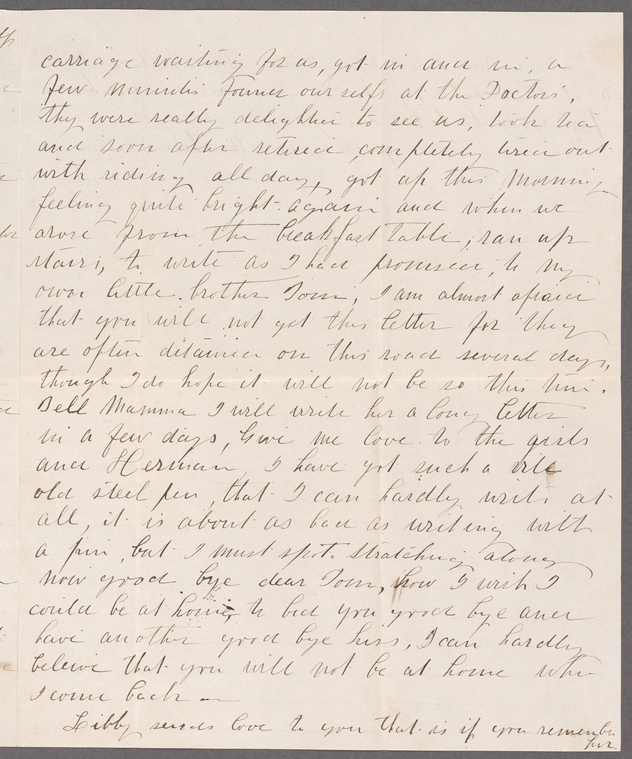 carriage waiting for us, got in and in, a
few minutes found our selfs at the Doctors,
they were really delighted to see us, took tea
and soon after retired, completely tired out
with riding all day, got up this morning
feeling quite bright again and when we
arose from the breakfast table, ran up
stairs, to write as I had promised, to my
own little brother Tom, I am almost afraid
that you will not get this letter for they
are often detained on this road several days,
though I do hope it will not be so this time.
Tell Mamma I will write her a long letter
in a few days, Give me love to the girls
and Herman, I have got such a vile
old steel pen, that I can hardly write at
all, it is about as bad as writing with
a pin, but I must stop stratching along
now good bye dear Tom, how I wish I
could be at home to bid you good bye and
have another good bye kiss, I can hardly
beleive that you will not be at home when
I come back —
Libby sends love to you that is if you remember
her